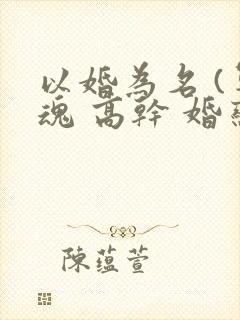 以婚為名(
魂 高幹 婚
陳蘊萱